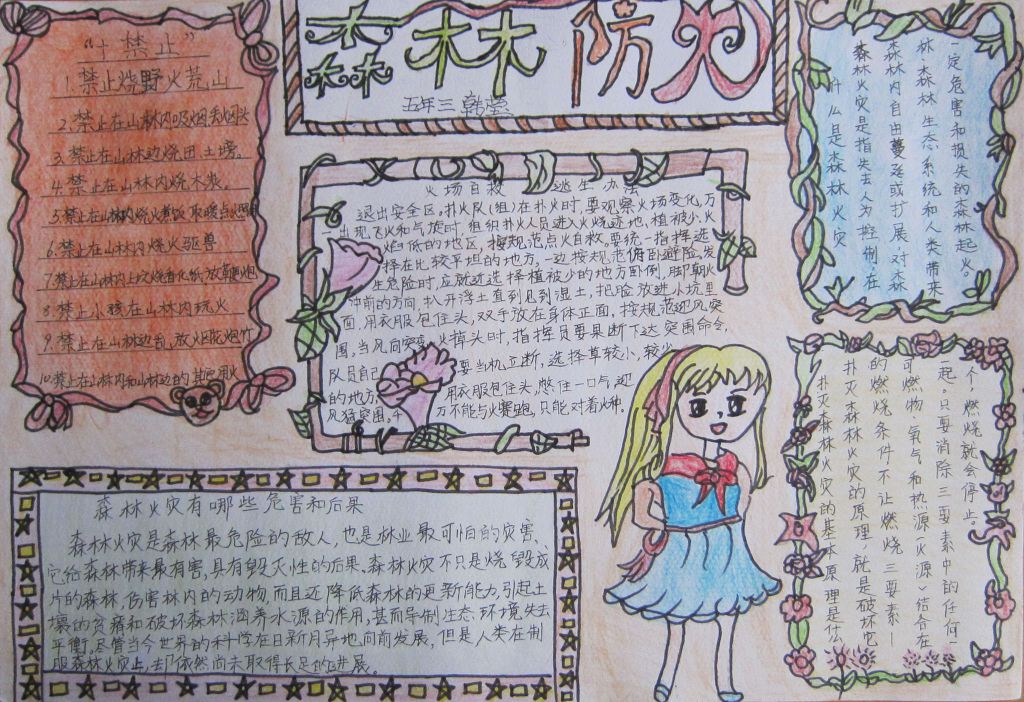 森林防火
五年三 韩莹
“十禁止”
1.禁止烧野火荒山
2.禁止在山林内吸烟丢烟头
3.禁止在山林边烧田土塝。
4.禁止在山林内烧木炭。
5.禁止在山林内烧火煮饭取暖点火照明
6.禁止在山林内烧火驱兽
7.禁止在山林内上坟烧香化纸、放鞭炮
8.禁止小孩在山林内玩火
9.禁止在山林边
10.禁止在山林内和山林边的其它用火
火场自救 逃生办法
退出安全区。扑火队(组)在扑火时,要观察火场变化,万
一出现飞火和气旋时,组织扑火人员进入火烧迹地、植被少、火
焰低的地区,按规范点火自救,要统一指挥,选
择在比较平坦的地方,一边按规范俯卧避险,发
生危险时,应就近选择植被少的地方卧倒,脚朝火
冲前的方向,扒开浮土直到见到湿土,把脸放进小坑里
面,用衣服包住头,双手放在身体正面,按规范迎风突
围。当风向突变,火掉头时,指挥员要果断下达突围命令,
队员自己 要当机立断,选择草较小,较少
的地方 用衣服包住头,憋住一口气,迎
风猛突围。千 万不能与火赛跑,只能对着火冲。
什么是森林火灾
森林火灾是指失去人为控制,在
森林内自由蔓延或扩展,对森
林、森林生态系统和人类带来
一定危害和损失的森林起火。
森林火灾有哪些危害和后果
森林火灾是森林最危险的敌人,也是林业最可怕的灾害、
它给森林带来最有害,具有毁灭性的后果、森林火灾不只是烧毁成
片的森林,伤害林内的动物,而且还降低森林的更新能力,引起土
壤的贫瘠和破坏森林涵养水源的作用,甚而导制生态环境失去
平衡,尽管当今世界的科学在日新月异地向前发展,但是人类在制
服森林火灾上,却依然尚未取得长足的进展。
扑灭森林火灾的基本原理是什么
扑灭森林火灾的原理,就是破坏它
的燃烧条件不让燃烧三要素—
可燃物、氧气和热源(火源)结合在
一起。只要消除三要素中的任何一
个,燃烧就会停止。